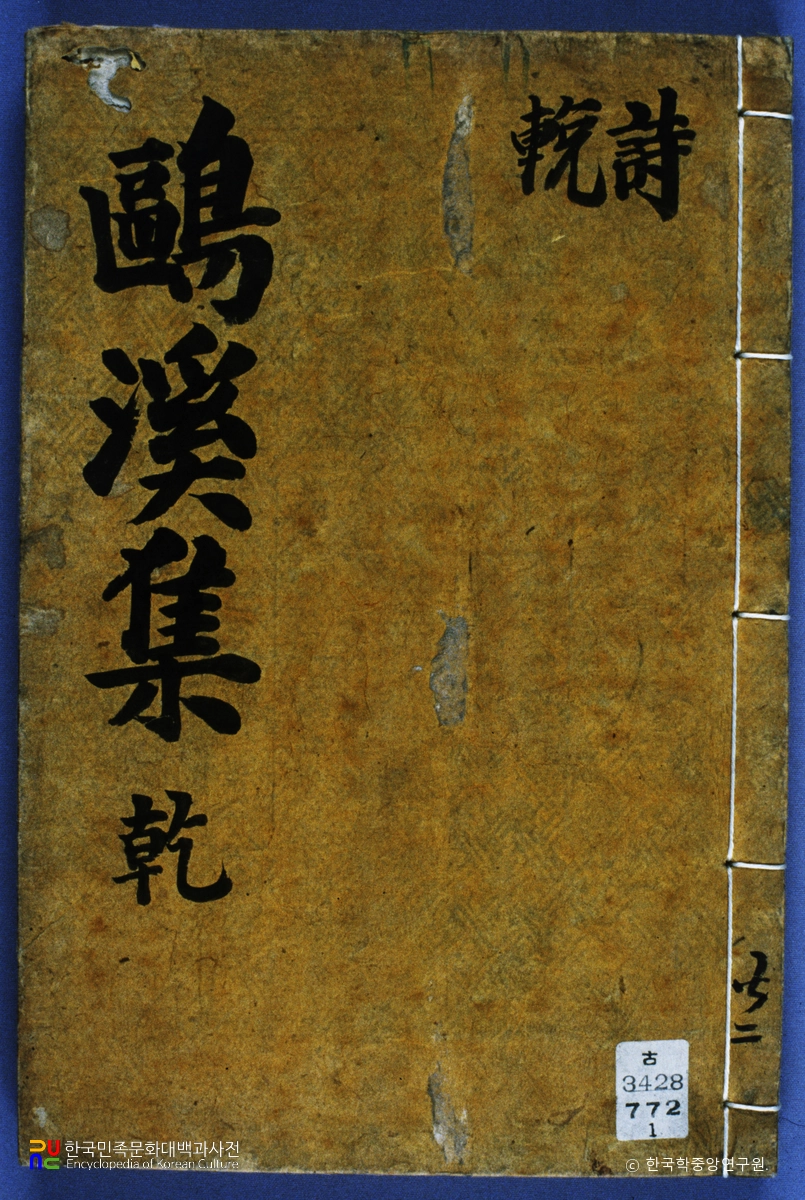 詩
輓
鷗溪集 乾
共二
古
3428
772
1
한국민족문화대백과사전
Encyclopedia of Korean Culture
ⓒ 한국학중앙연구원